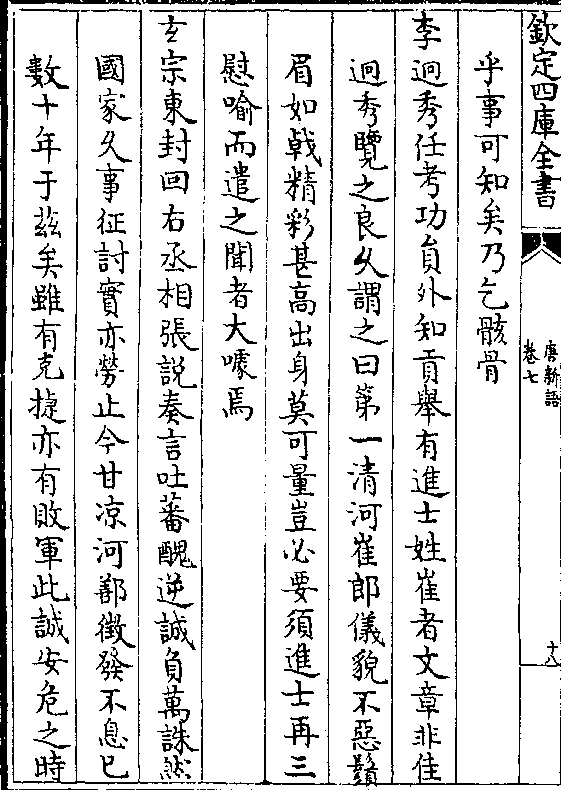 欽定四庫全書
唐新語
卷七
十八
乎事可知矣乃乞骸骨
李迥秀任考功員外知貢舉有進士姓崔者文章非佳
迥秀覽之良久謂之曰第一清河崔郎儀貌不惡鬚
眉如戟精彩甚高出身莫可量豈必要須進士再三
慰喻而遣之聞者大噱焉
玄宗東封回右丞相張說奏言吐蕃醜逆誠負萬誅然
國家久事征討實亦勞止今甘涼河鄯徵發不息已
數十年于茲矣雖有克捷亦有敗軍此誠安危之時